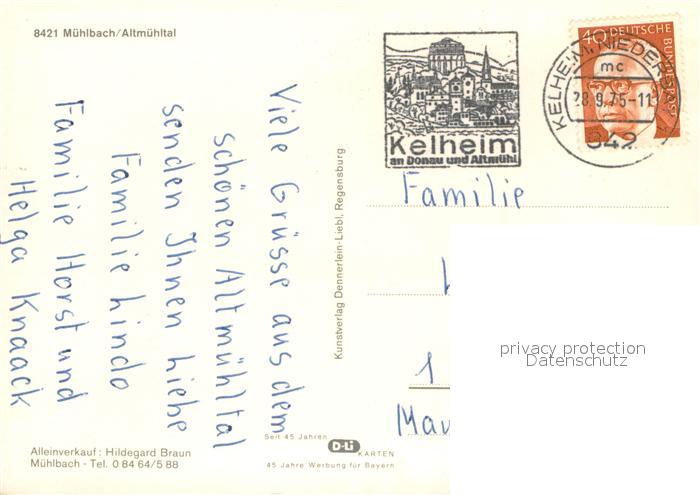 8421 Mühlbach/Altmühltal
Viele Grüsse aus dem
schönen Altmühltal
senden Ihnen liebe
Familie Lindo
Familie Horst und
Helga Knaack
Alleinverkauf: Hildegard Braun
Mühlbach - Tel. 0 84 64/5 88
Kunstverlag Dennerlein-Liebl, Regensburg
Seit 45 Jahren
D-Li
KARTEN
45 Jahre Werbung für Bayern
Kelheim
an Donau und Altmühl
KELHEIM, NIEDER
mc
28.9.75-11
842
40 DEUTSCHE BUNDESPOST
Familie
1
privacy protection
Datenschutz